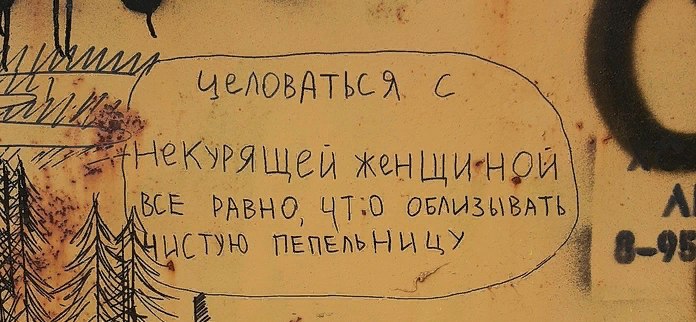 ЦЕЛОВАТЬСЯ С
НЕКУРЯЩЕЙ ЖЕНЩИНОЙ
ВСЕ РАВНО, ЧТО ОБЛИЗЫВАТЬ
ЧИСТУЮ ПЕПЕЛЬНИЦУ
8-95